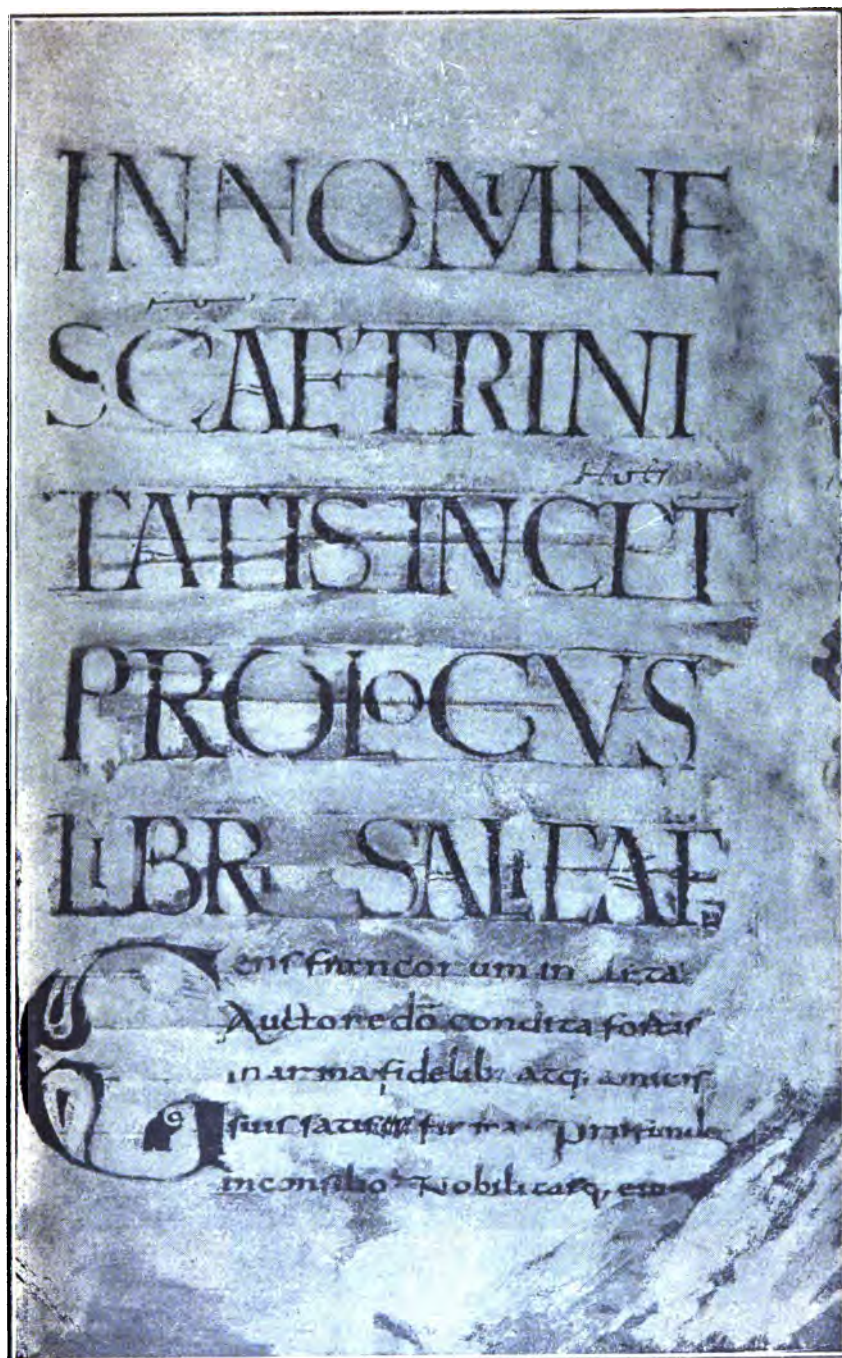 IN NOMINE
SCAE TRINI
TATIS INCPT
PROLOGUS
LIBRI SALEAE
Gens francorum in
Auctore dō condita fortis
in arma fidelib; atq; amicis
suis satisq; firma Profunda
inconsilio Nobilitasq; eius